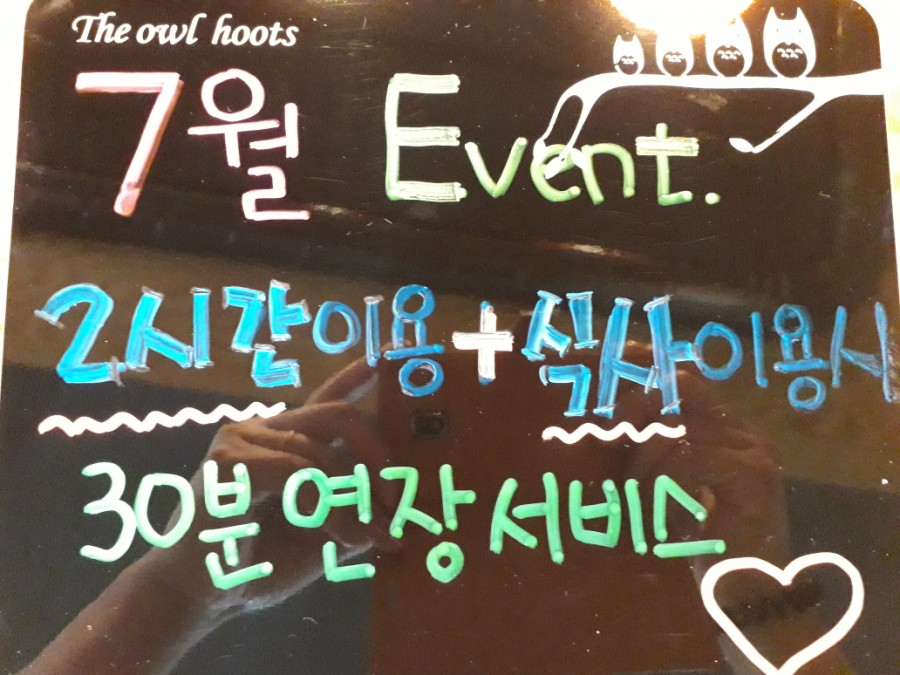 The owl hoots
7월 Event.
2시간이용+식사이용시
30분 연장 서비스